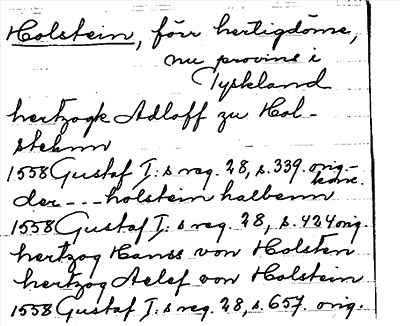 Holstein, förr hertigdöme,
nu provins i
Tyskland
hertzogk Adloff zu Hol-
stehnn
1558 Gustaf I:s reg. 28, s. 339. orig.-
konc.
der --- holstein halbenn
1558 Gustaf I:s reg. 28, s. 424 orig.
hertzog Hanss von Holsten
hertzog Aelef von Holstein
1558 Gustaf I:s reg. 28, s. 657. orig.